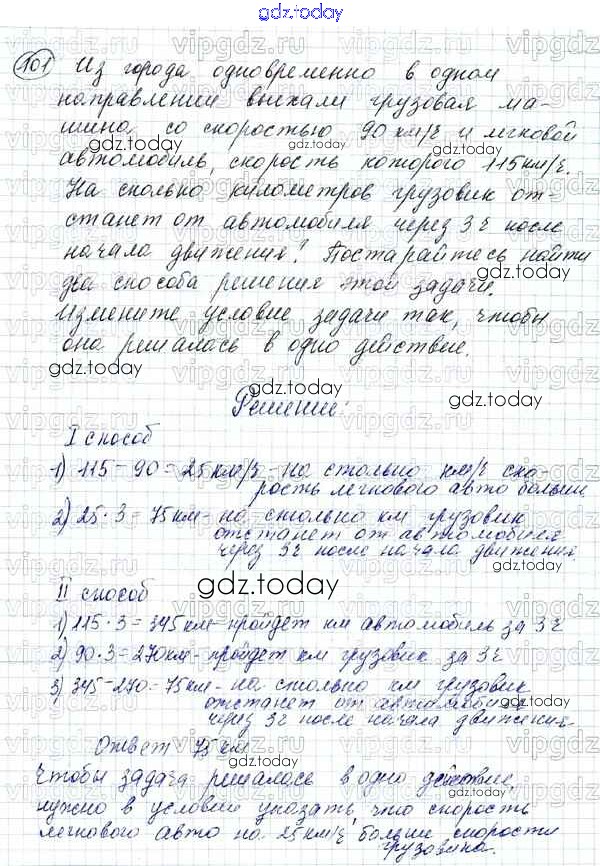 gdz.today
101 Из города одновременно в одном
направлении выехали грузовая ма-
шина со скоростью 90 км/ч и легковой
автомобиль, скорость которого 115км/ч.
На сколько километров грузовик от-
станет от автомобиля через 3ч после
начала движения? Постарайтесь найти
два способа решения этой задачи.
Измените условие задачи так, чтобы
она решалась в одно действие.
Решение:
I способ
1) 115 - 90 = 25км/ч - на столько км/ч ско-
рость легкового авто больше
2) 25 · 3 = 75км - на столько км грузовик
отстанет от автомобиля
через 3ч после начала движения.
II способ
1) 115 · 3 = 345км - пройдет км автомобиль за 3ч
2) 90 · 3 = 270км - пройдет км грузовик за 3ч
3) 345 - 270 = 75км - на столько км грузовик
отстанет от автомобиля
через 3ч после начала движения.
Ответ 75 км
Чтобы задача решалась в одно действие,
нужно в условии указать, что скорость
легкового авто на 25км/ч больше скорости
грузовика.
gdz.today